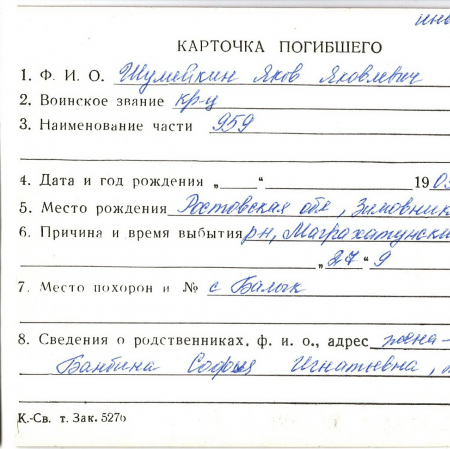 КАРТОЧКА ПОГИБШЕГО
1. Ф. И. О. Шумейкин Яков Яковлевич
2. Воинское звание кр-ц
3. Наименование части 959
4. Дата и год рождения „ “ 190
5. Место рождения Ростовская обл, Зимовник
6. Причина и время выбытия рн,
„27“ 9
7. Место похорон и № с Балык
8. Сведения о родственниках, ф. и. о., адрес жена-
Банбина Софья Игнатьевна,
К.-Св. т. Зак. 527б